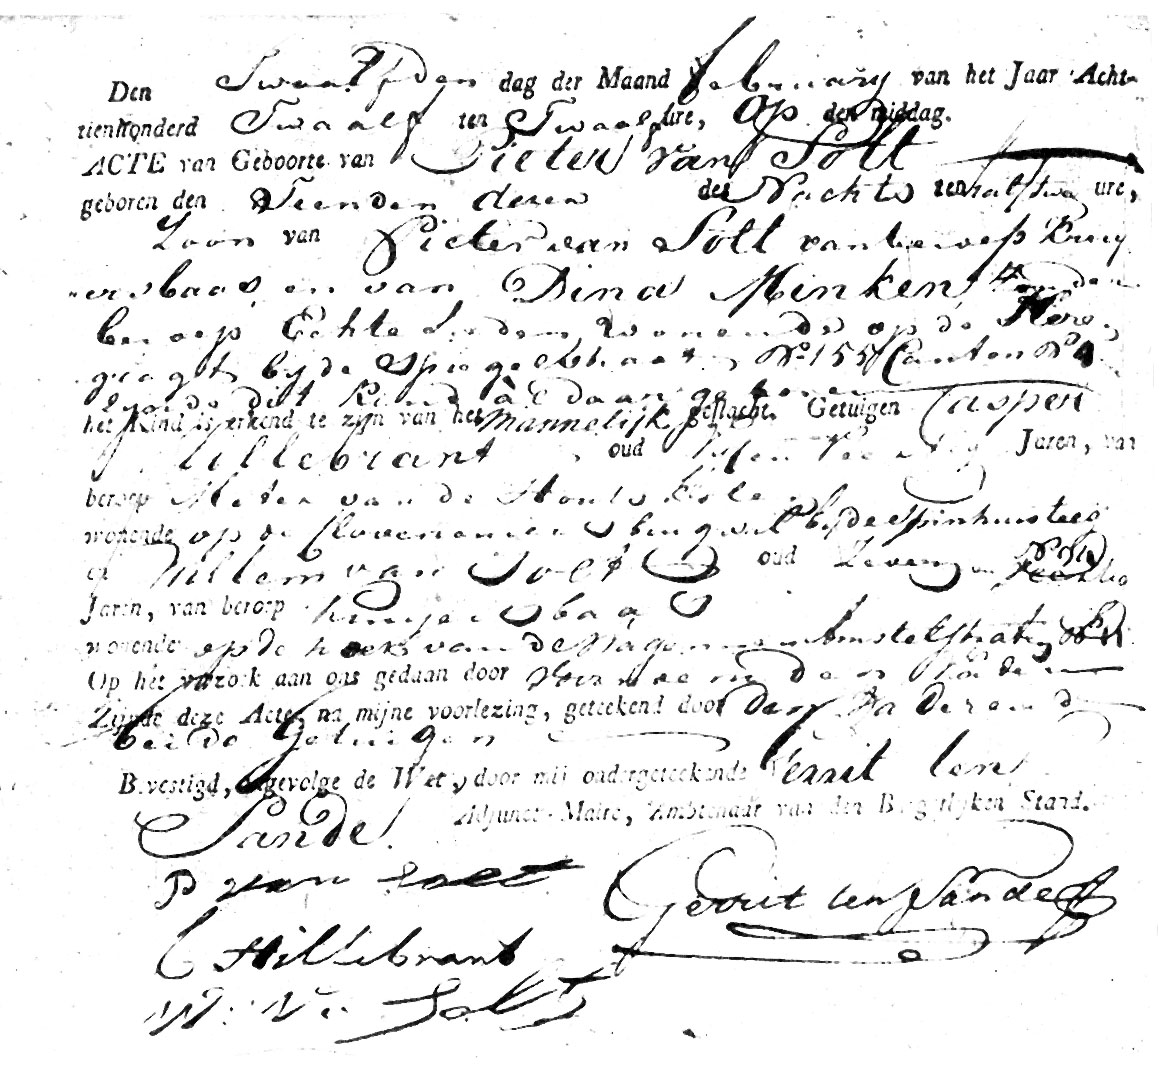 Den Twaalfden dag der Maand february van het Jaar Acht-
tienhonderd Twaalf ten Twaalf ure, Op den middag.
ACTE van Geboorte van Pieter van Solt
geboren den Tienden dezer des Nachts ten half twe ure,
Zoon van Pieter van Solt van beroep Kruy
ersbaas, en van Dina Minken, zonder
beroep Echte Lieden, wonende op de Here
gragt, bij de Spiegelstraat, No. 155 Canton No. 4
Zijnde dit Kind aldaar geboren
het Kind is erkend te zijn van het Mannelijk geslacht. Getuigen Casper
Hillebrant, oud Jaren, van
beroep Meter van de
wonende op de Cloveniers burgwal bij de Spinhuissteeg
et Willem van Solt oud Zeven en
Jaren, van beroep kruijersbaas
wonende op de hoek van de Wagen en Amstelstraaten
Op het verzoek aan ons gedaan door den Vader
Zijnde deze Acte, na mijne voorlezing, geteekend door den Vader en de
beide Getuigen
Bevestigd, ingevolge de Wet, door mij ondergeteekende Gerrit ten
Sande. Adjunct-Maire, Ambtenaar van den Burgerlyken Stand.
P van Solt
Gerrit ten Sande
C Hillebrant
W. V. Solt